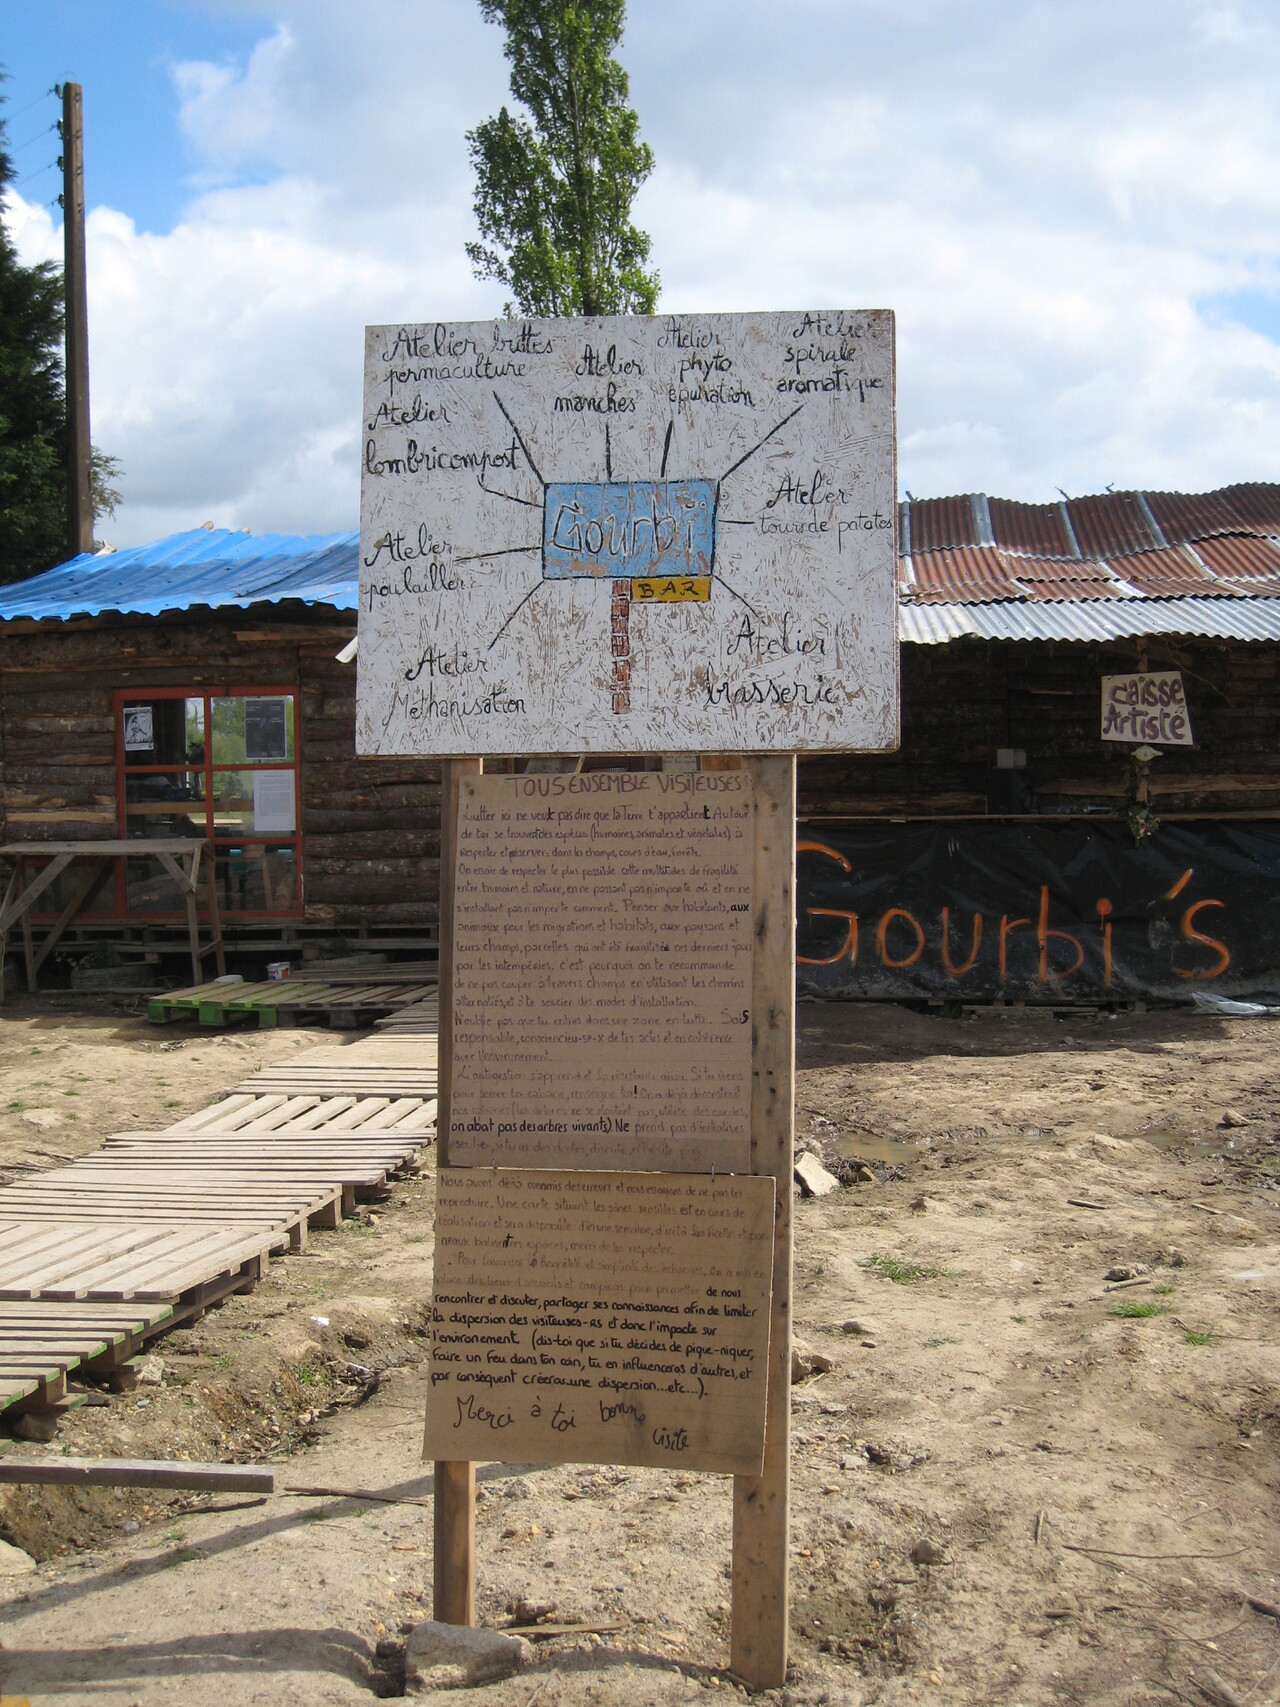 Atelier buttes
permaculture
Atelier
manches
Atelier
phyto
épuration
Atelier
spirale
aromatique
Atelier
lombricompost
Gourbi
BAR
Atelier
tours de patates
Atelier
poulailler
Atelier
brasserie
Atelier
Méthanisation
caisse
Artiste
Gourbi's
TOUS ENSEMBLE VISITEUSES
Lutter ici ne veut pas dire que la Terre t'appartient. Autour
de toi se trouve des espèces (humaines, animales et végétales) à
respecter et préserver: dans la champs, cours d'eau, forêts.
On essaie de respecter le plus possible cette multitudes de fragilité
entre humains et nature, en ne passant pas n'importe où et en ne
s'installant pas n'importe comment. Penser aux habitants, aux
animaux pour les migrations et habitats, aux paysans et
leurs champs, parcelles qui ont été fragilisées ces derniers jours
par les intempéries. c'est pourquoi on te recommande
de ne pas couper à travers champs en utilisant les chemins
alternatifs, et à te soucier des modes d'installation.
N'oublie pas que tu entres dans une zone en lutte. Sois
responsable, consciencieu-se-x de tes actes et en cohérence
avec l'environnement.
L'autogestion s'apprend et la résistance aussi. Si tu viens
pour semer ta cabane, renseigne toi! On a déjà déconstruit
nos cabanes (les arbres ne se clouent pas, utilise des cordes,
on abat pas des arbres vivants). Ne prend pas d'initiatives
seul-es, si tu as des doutes, discute, n'hésite pas
Nous avons déjà commis des erreurs et nous essayons de ne pas les
reproduire. Une carte situant les zones sensibles est en cours de
réalisation et sera disponible d'ici une semaine, d'ici là les ficelles et pan-
neaux balisent les espaces, merci de les respecter.
Pour favoriser l'honnêteté et simplicité des échanges, on a mis en
place des lieux d'accueils et campings pour permettre de nous
rencontrer et discuter, partager ses connaissances afin de limiter
la dispersion des visiteuses-rs et donc l'impacte sur
l'environement (dis-toi que si tu décides de pique-niquer,
faire un feu dans ton coin, tu en influenceras d'autres, et
par conséquent créeras une dispersion...etc...).
Merci à toi bonne
visite